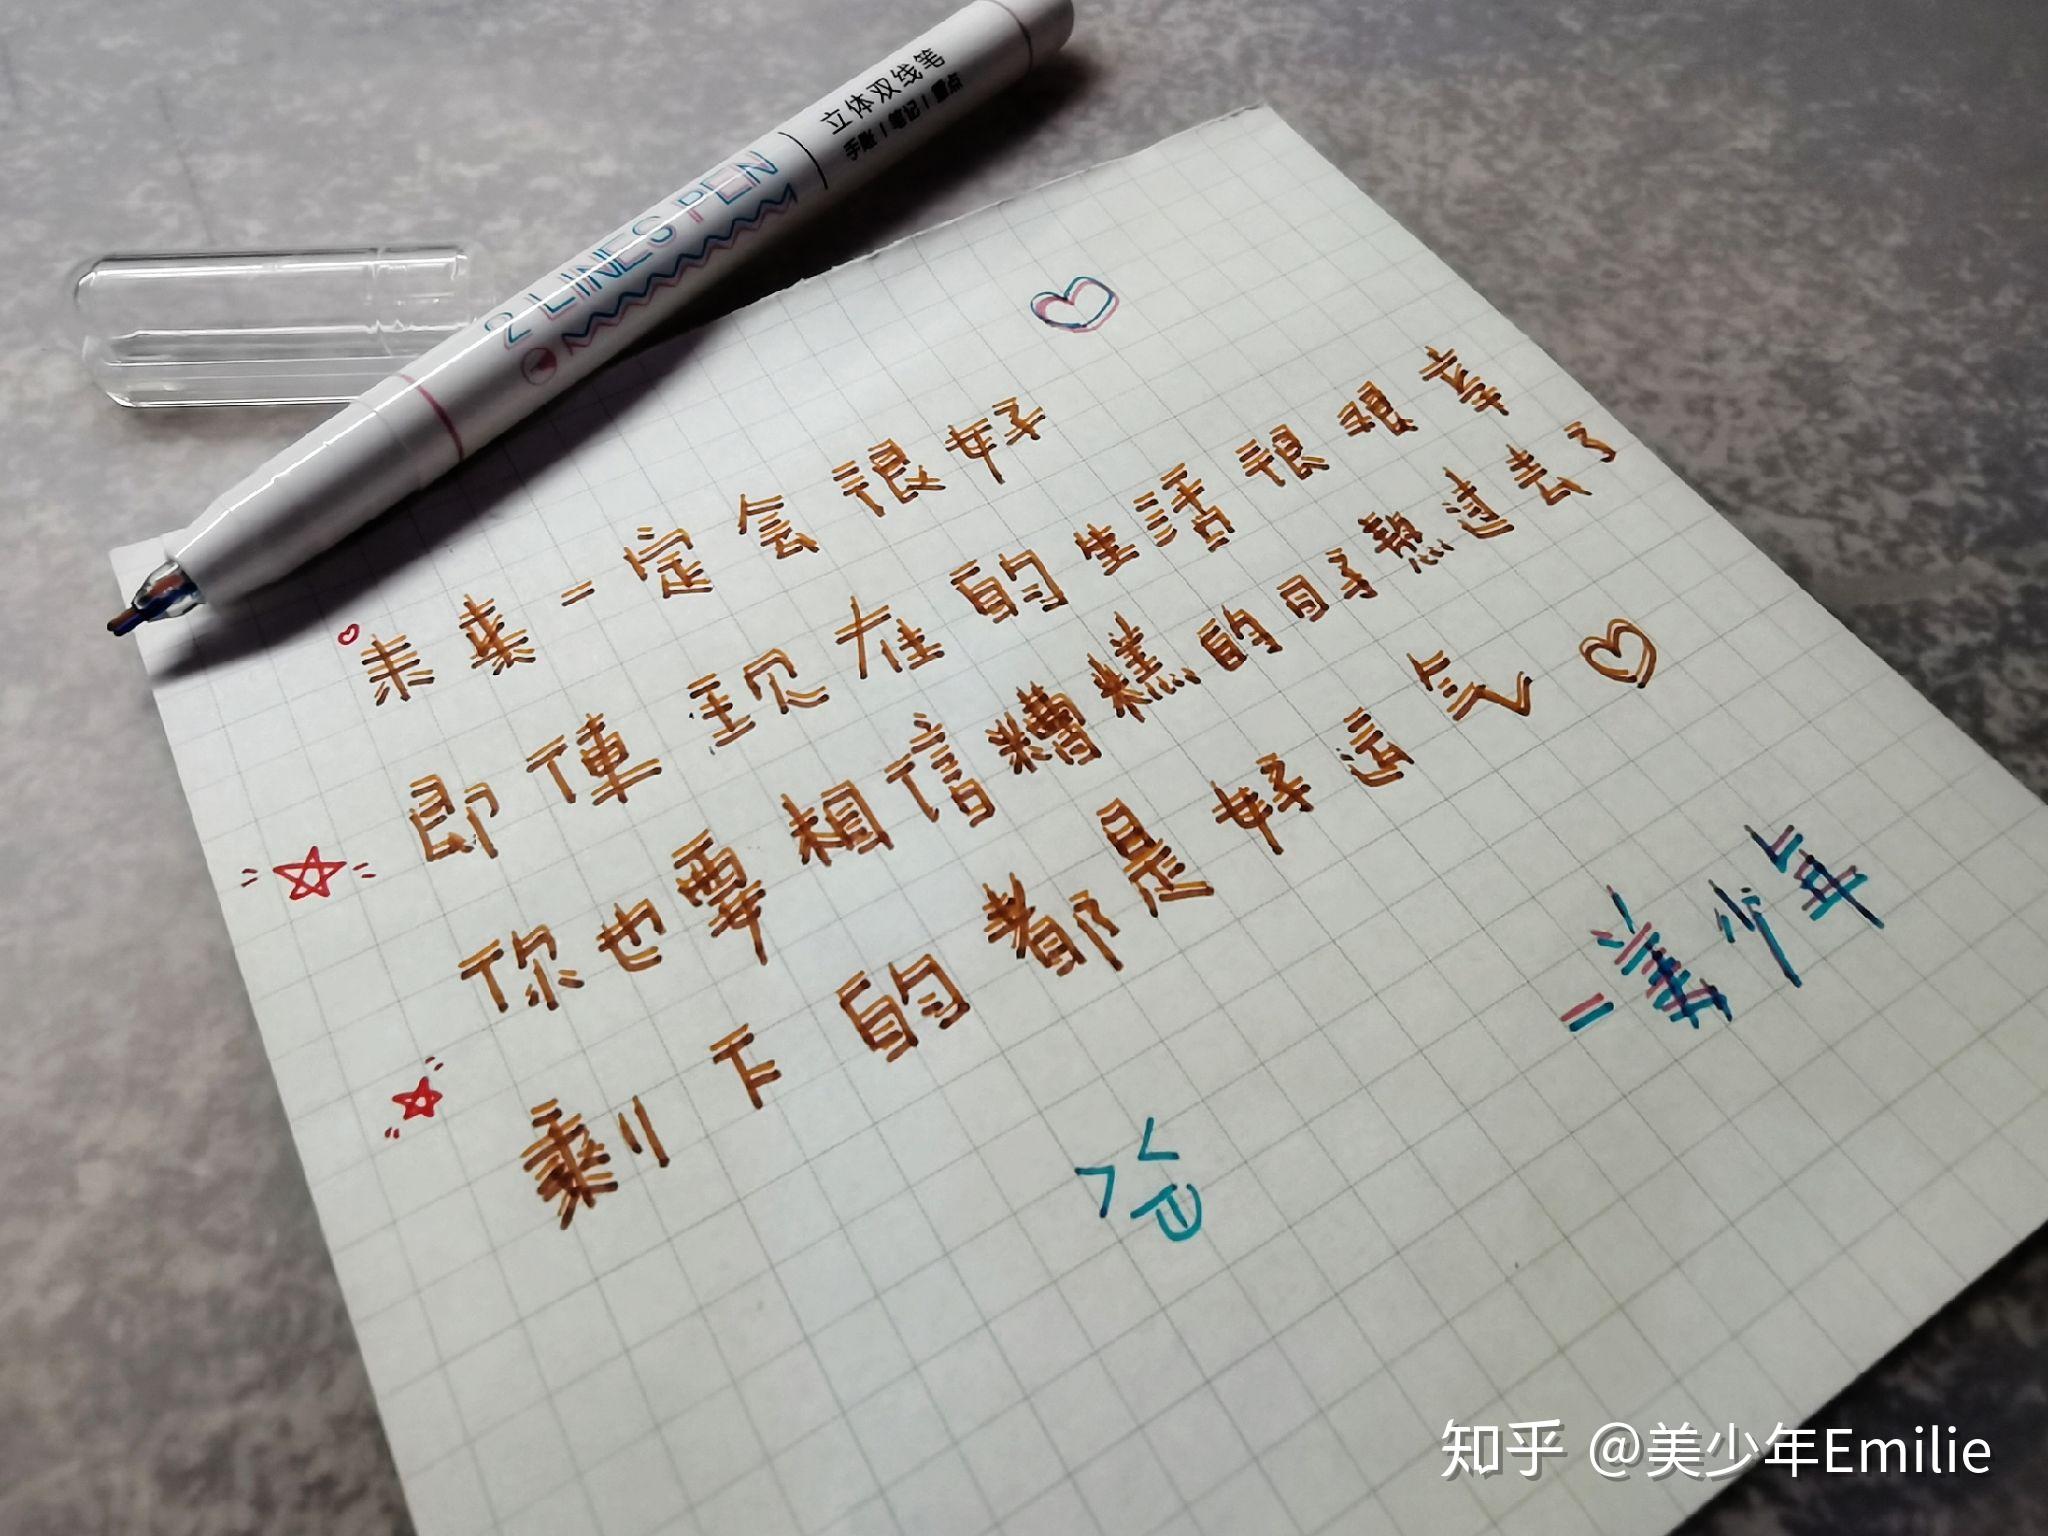 立体双线笔
手账|笔记|重点
2 LINES PEN
未来一定会很好
即便现在的生活很艰辛
你也要相信糟糕的日子熬过去了
剩下的都是好运气
-美少年
知乎 @美少年Emilie